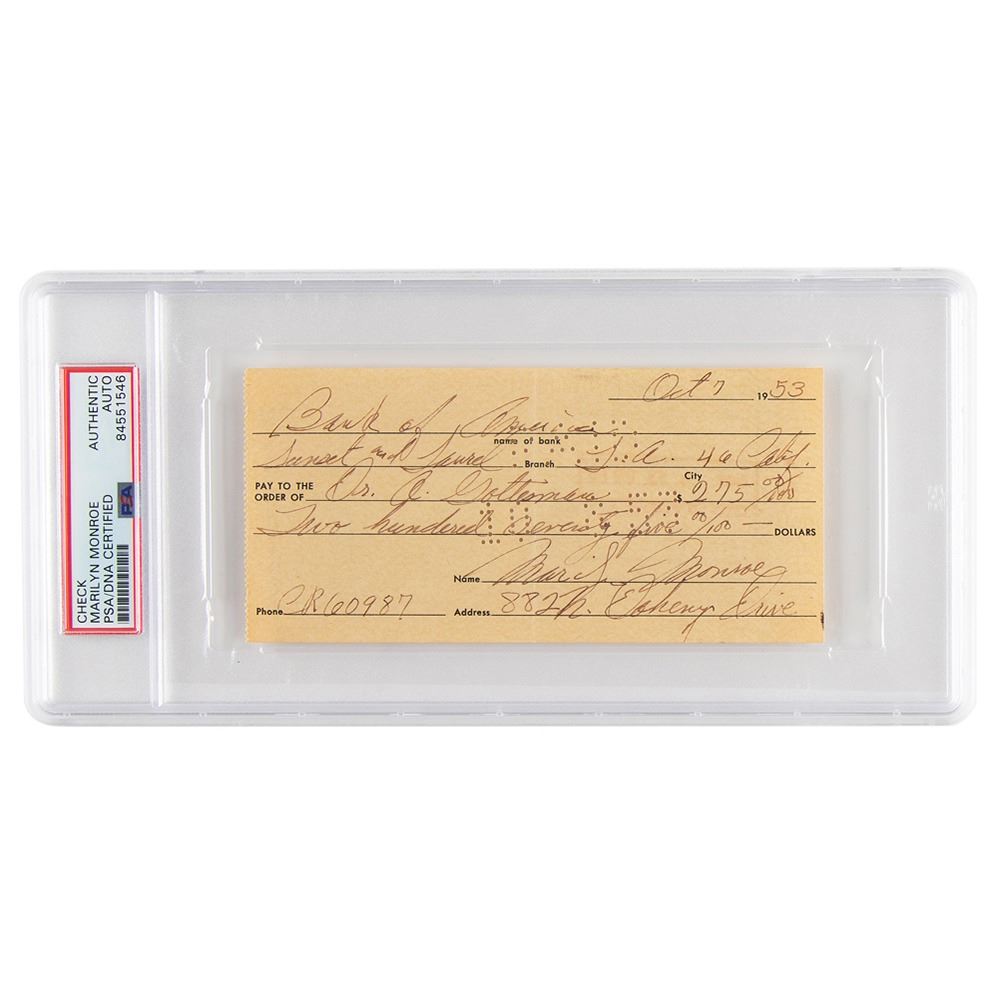 CHECK
MARILYN MONROE
PSA/DNA CERTIFIED
AUTHENTIC
AUTO
84551546
PSA
Oct 7 1953
Bank of America
name of bank
Sunset and Laurel L.A. 46 Calif.
Branch City
PAY TO THE
ORDER OF Dr. A. Gottesman $ 275 00/100
Two hundred seventy five 00/100 — DOLLARS
Name Marilyn Monroe
Phone CR60987 Address 882 N. Doheny Drive